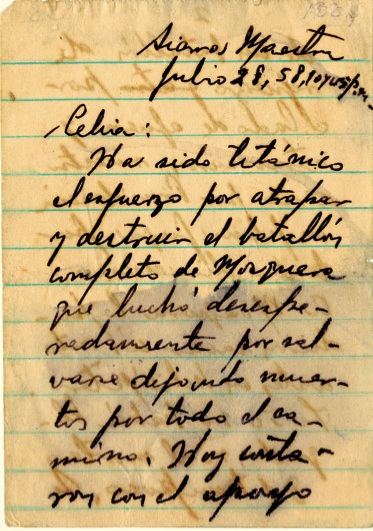 Sierra Maestra
Julio 28, 58, 10 y 05 p.m.
Celia:
Ha sido titánico
el esfuerzo por atrapar
y destruir el batallón
completo de Mosquera
que luchó desespe-
radamente por sal-
varse dejando muer-
tos por todo el ca-
mino. Hoy conta-
ron con el apoyo